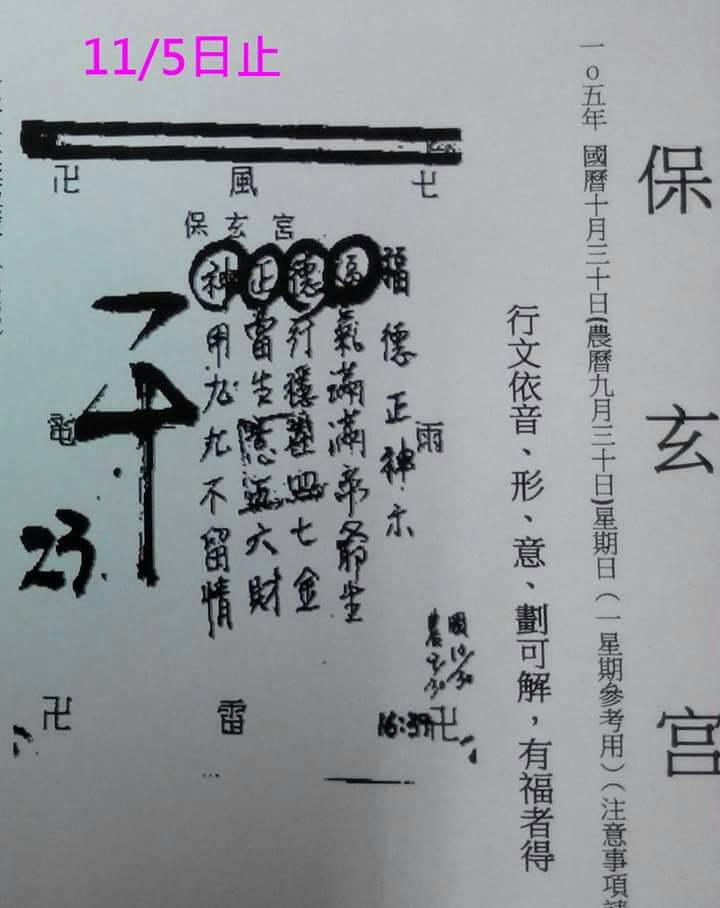 11/5日止
保玄宮
一０五年 國曆十月三十日(農曆九月三十日)星期日（一星期參考用）（注意事項請
行文依音、形、意、劃可解，有福者得
卍 風 七
保玄宮
福德正神示
福氣滿滿帝爺坐
德行穩 四七金
正當生意五六財
神用九九不留情
雨
電
23.
國10/30
農9/30
16:39
卍 雷 卍